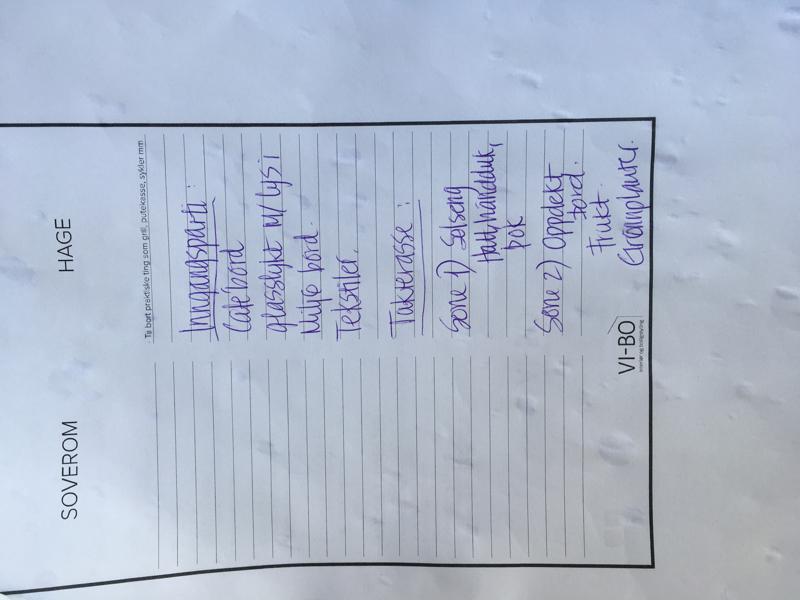 SOVEROM
HAGE
Ta bort praktiske ting som grill, putekasse, sykler mm
Inngangsparti:
Cafébord
glasslykt m/ lys i
Miljø bord.
Tekstiler.
Takterasse:
Sone 1) Solseng
hatt, håndduk,
bok
Sone 2) Oppdekt
bord.
Frukt.
Grønnplanter.
VI-BO